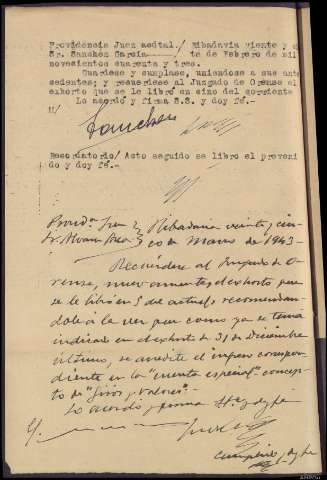 Providencia Juez acctal./ Ribadavia viente y c
Sr. Sanchez Garcia te de Febrero de mil
novecientos cuarenta y tres.
Guardese y cumplase, uniendose a sus ante
cedentes; y recuerdese al Juzgado de Orense el
exhorto que se le libró en cino del corriente
Lo acordó y firma S.S. y doy fé.-
M/
Sanchez
Recordatorio/ Acto seguido se libro el preveni
do y doy fé.-
Provda. Juez Ribadavia veinte y cin
Sr. Alvarez co de Marzo de 1943-
Recuérdese al Juzgado de O-
rense, nuevamente, el exhorto que
se le libró en 5 del actual, recomendan-
dole a la vez que como ya se tenia
indicado en el exhorto de 31 de Diciembre
último, se acredite el ingreso correspon-
diente en la "cuenta especial" concepto
de "Giros y Valores".-
Lo acordó y firma S.Sª. y doy fe